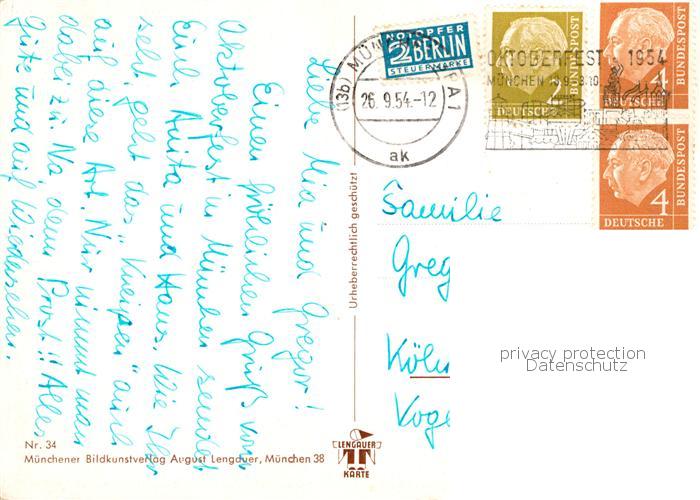 Liebe Mia und Gregor!
Einen fröhlichen Gruß vom
Oktoberfest in München sendet
Euch Anita und Hans. Wie Ihr
seht geht das "Kneipen" auch
auf diese Art. Nur nimmt man
dabei zu. Na denn Prost!! Alles
Gute und auf Wiedersehen.
NOTOPFER
2 BERLIN
STEUERMARKE
(13b) MÜNCHEN
26.9.54.-12
ak
OKTOBERFEST 1954
MÜNCHEN
2
DEUTSCHE
BUNDESPOST
4
DEUTSCHE
BUNDESPOST
4
DEUTSCHE
BUNDESPOST
Urheberrechtlich geschützt
Familie
Greg
Köln
Voge
privacy protection
Datenschutz
Nr. 34
Münchener Bildkunstverlag August Lengauer, München 38
LENGAUER
KARTE